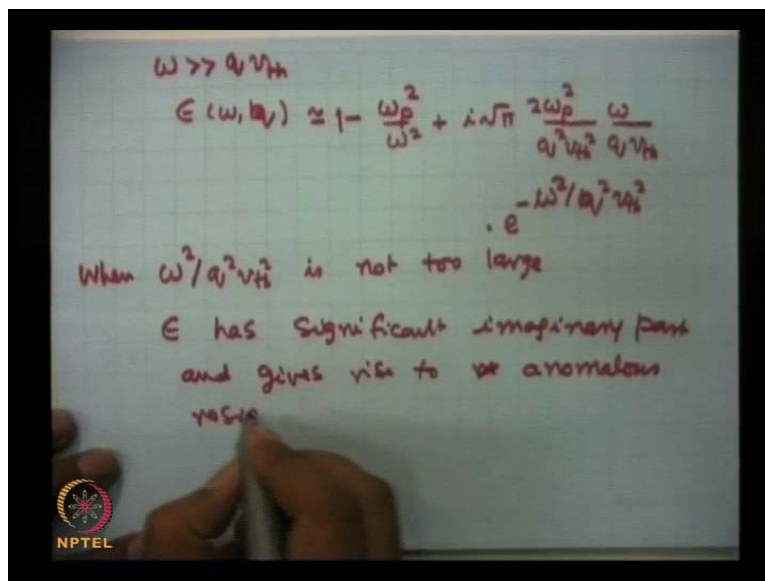 ω >> q vth
∈ (ω, q) ≃ 1 - ωp²/ω² + i√π 2ωp²/q²vth² ω/q vth
. e^-ω²/q²vth²
When ω²/q²vth² is not too large
∈ has significant imaginary part
and gives rise to anomalous
resis
NPTEL